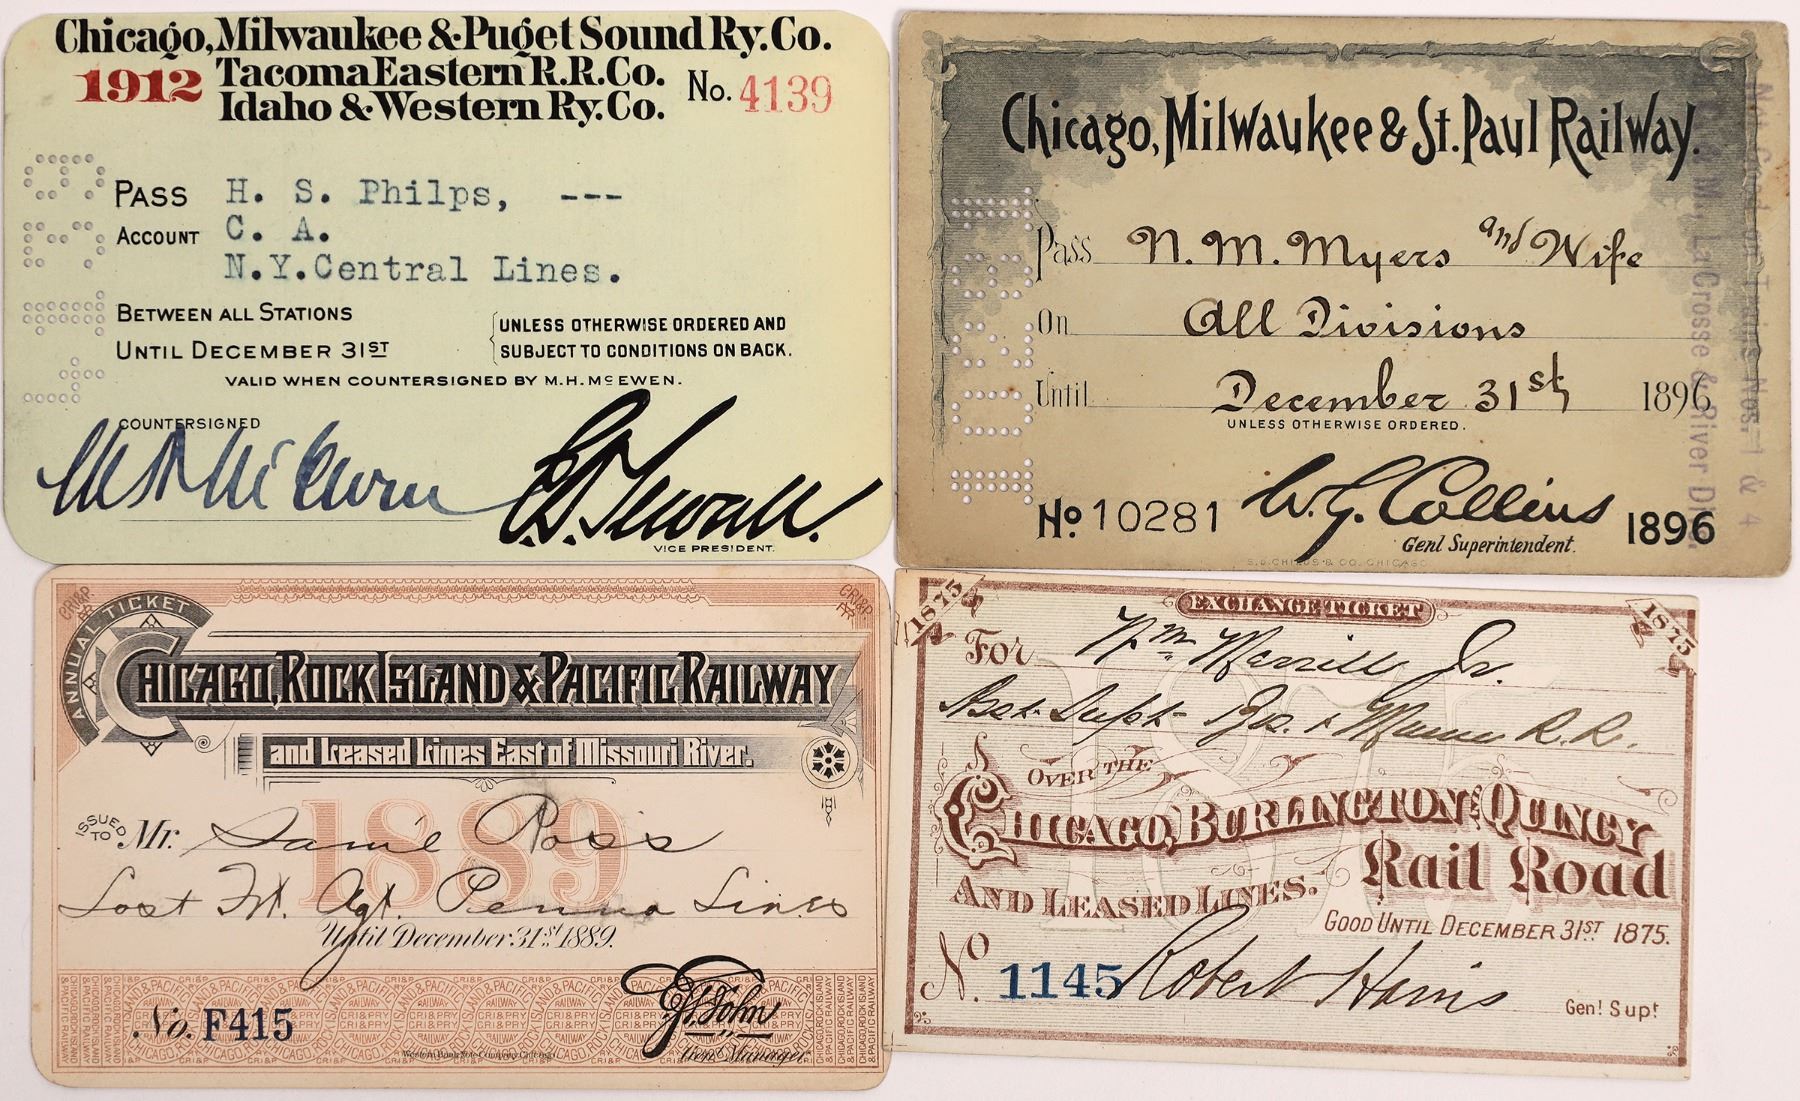 Chicago, Milwaukee & Puget Sound Ry. Co.
1912 Tacoma Eastern R.R. Co. No. 4139
Idaho & Western Ry. Co.
PASS H. S. Philps, ---
ACCOUNT C. A.
N.Y.Central Lines.
BETWEEN ALL STATIONS
UNTIL DECEMBER 31ST
UNLESS OTHERWISE ORDERED AND
SUBJECT TO CONDITIONS ON BACK.
VALID WHEN COUNTERSIGNED BY M.H. McEWEN.
COUNTERSIGNED
VICE PRESIDENT.
Chicago, Milwaukee & St. Paul Railway.
Pass N. M. Myers and Wife
On All Divisions
Until December 31st 1896
UNLESS OTHERWISE ORDERED.
No 10281 W. G. Collins 1896
Genl Superintendent.
S.D. CHILDS & CO. CHICAGO
LaCrosse & River Div.
Not Good on Trains Nos. 1 & 4
ANNUAL TICKET
CRI&P RY
CRI&P RY
CHICAGO, ROCK ISLAND & PACIFIC RAILWAY
and Leased Lines East of Missouri River.
1889
ISSUED TO Mr. Samìe Ross
Agt. Penna Lines
Until December 31st 1889.
No. F415 E. St. John
Gen'l Manager
Western Bank Note Company Chicago
EXCHANGE TICKET
1875
1875
For Wm Merrill Jr.
Asst Supt R. R.
OVER THE
CHICAGO, BURLINGTON AND QUINCY
Rail Road
AND LEASED LINES.
GOOD UNTIL DECEMBER 31ST 1875.
No. 1145 Robert Harris
Genl Supt